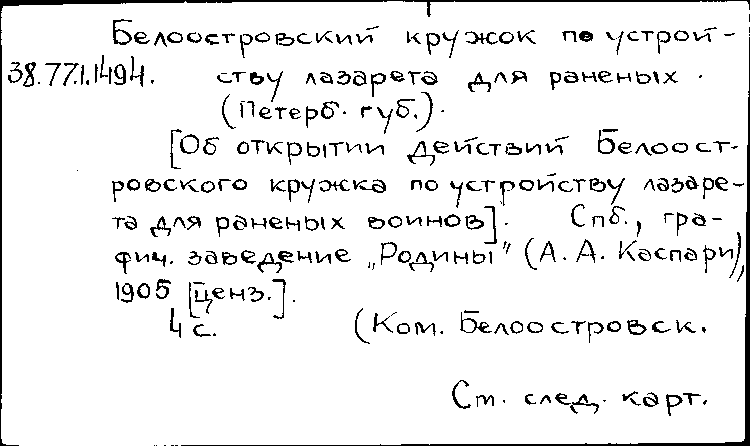 Белоостровский кружок по устрой-
38.77.1.1494. ству лазарета для раненых.
(Петерб. губ.).
[Об открытии действий Белоост-
ровского кружка по устройству лазаре-
та для раненых воинов]. Спб., гра-
фич. заведение „Родины" (А. А. Каспари),
1905 [ценз.].
4 с. (Ком. Белоостровск.
См. след. карт.